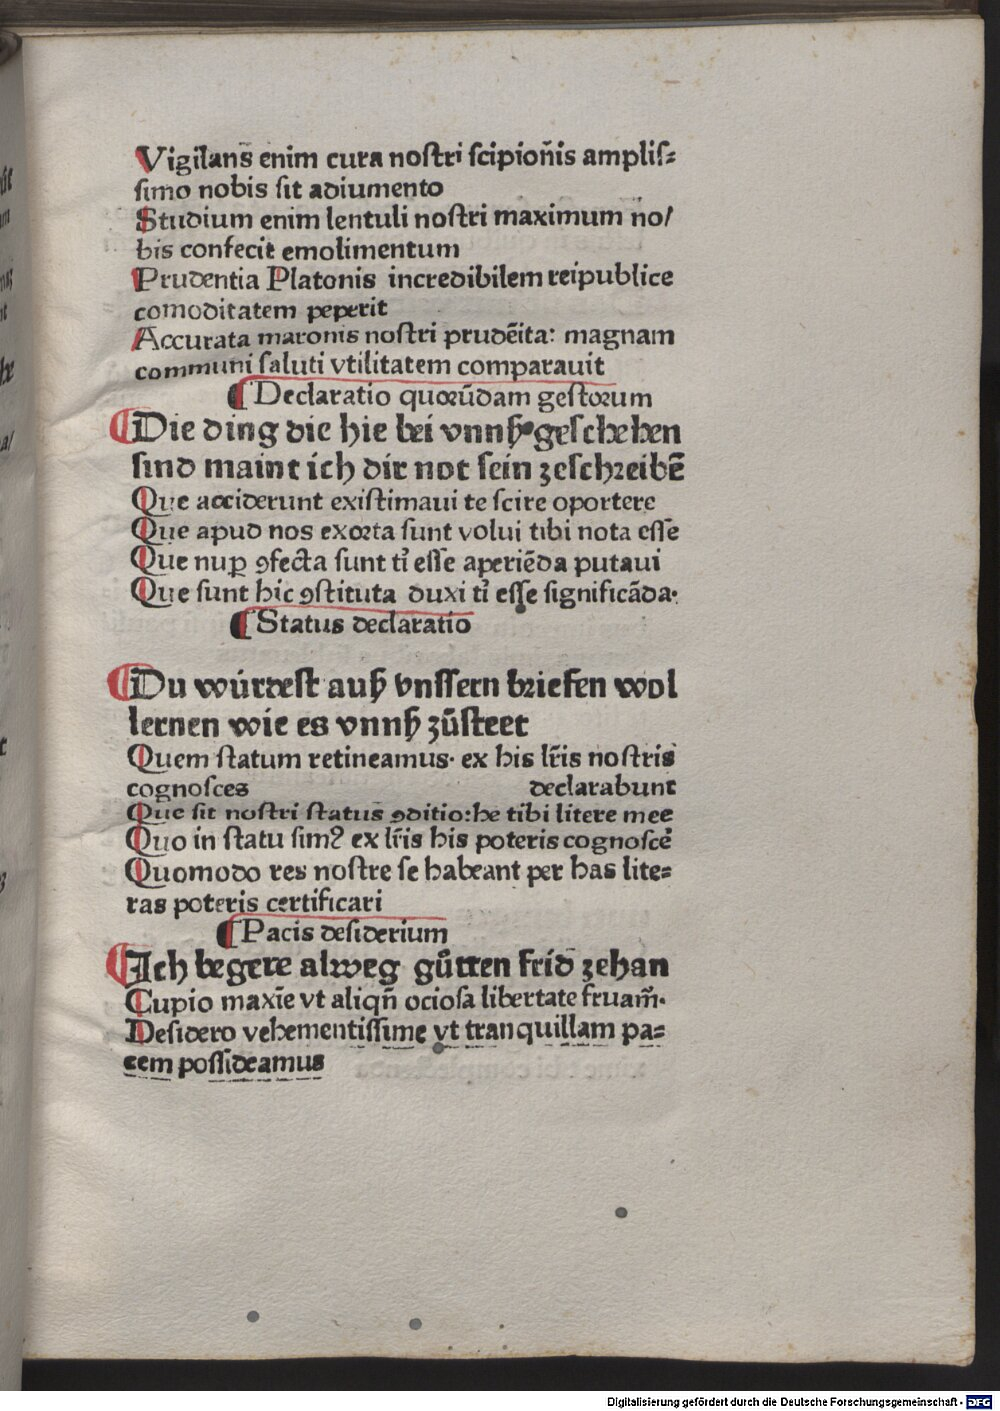 Vigilans enim cura nostri scipion̄is amplis⸗
simo nobis sit adiumento
Studium enim lentuli nostri maximum no/
bis confecit emolimentum
Prudentia Platonis incredibilem reipublice
comoditatem peperit
Accurata maronis nostri prudēita: magnam
communi saluti vtilitatem comparauit
¶ Declaratio quorūdam gestorum
¶ Die ding die hie bei vnnß geschehen
sind maint ich dir not sein zeschreibē
Que acciderunt existimaui te scire oportere
Que apud nos exorta sunt volui tibi nota esse
Que nuꝑ ꝯfecta sunt ti̇ esse aperiēda putaui
Que sunt hic ꝯstituta duxi ti̇ esse significāda.
¶ Status declaratio
¶ Du wúrdest auß vnssern briefen wol
lernen wie es vnnß zůsteet
Quem statum retineamus. ex his lr̄is nostris
cognosces declarabunt
Que sit nostri status ꝯditio: he tibi litere mee
Quo in statu simꝰ ex lr̄is his poteris cognoscē
Quomodo res nostre se habeant per has lite⸗
ras poteris certificari
¶ Pacis desiderium
¶ Ich begere alweg gůtten frid zehan
Cupio maxīe vt aliqn̄ ociosa libertate fruam̄.
Desidero vehementissime vt tranquillam pa⸗
cem possideamus
Digitalisierung gefördert durch die Deutsche Forschungsgemeinschaft - DFG